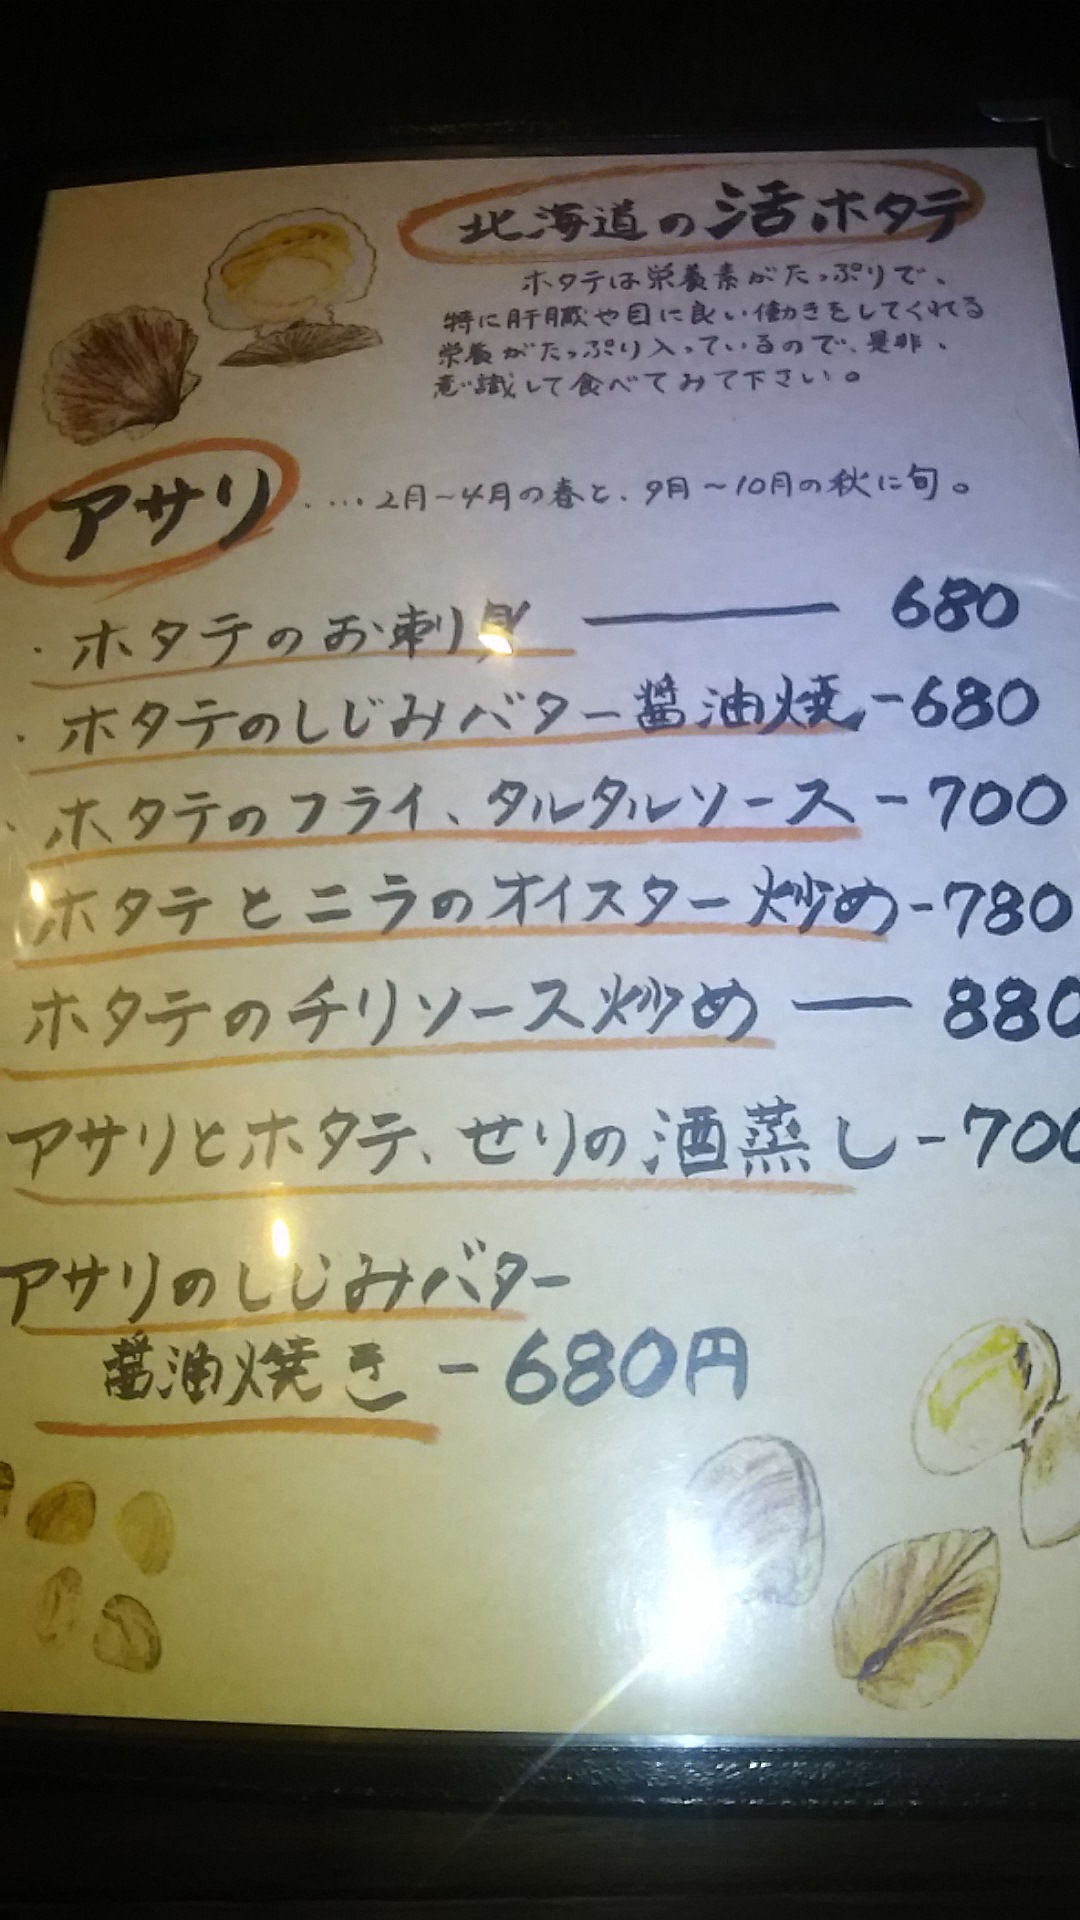 北海道の活ホタテ
ホタテは栄養素がたっぷりで、
特に肝臓や目に良い働きをしてくれる
栄養がたっぷり入っているので、是非、
意識して食べてみて下さい。
アサリ ‥‥ 2月～4月の春と、9月～10月の秋に旬。
・ホタテのお刺身 ― 680
・ホタテのしじみバター醤油焼 - 680
・ホタテのフライ、タルタルソース - 700
ホタテとニラのオイスター炒め - 780
ホタテのチリソース炒め ― 880
アサリとホタテ、せりの酒蒸し - 700
アサリのしじみバター
醤油焼き - 680円